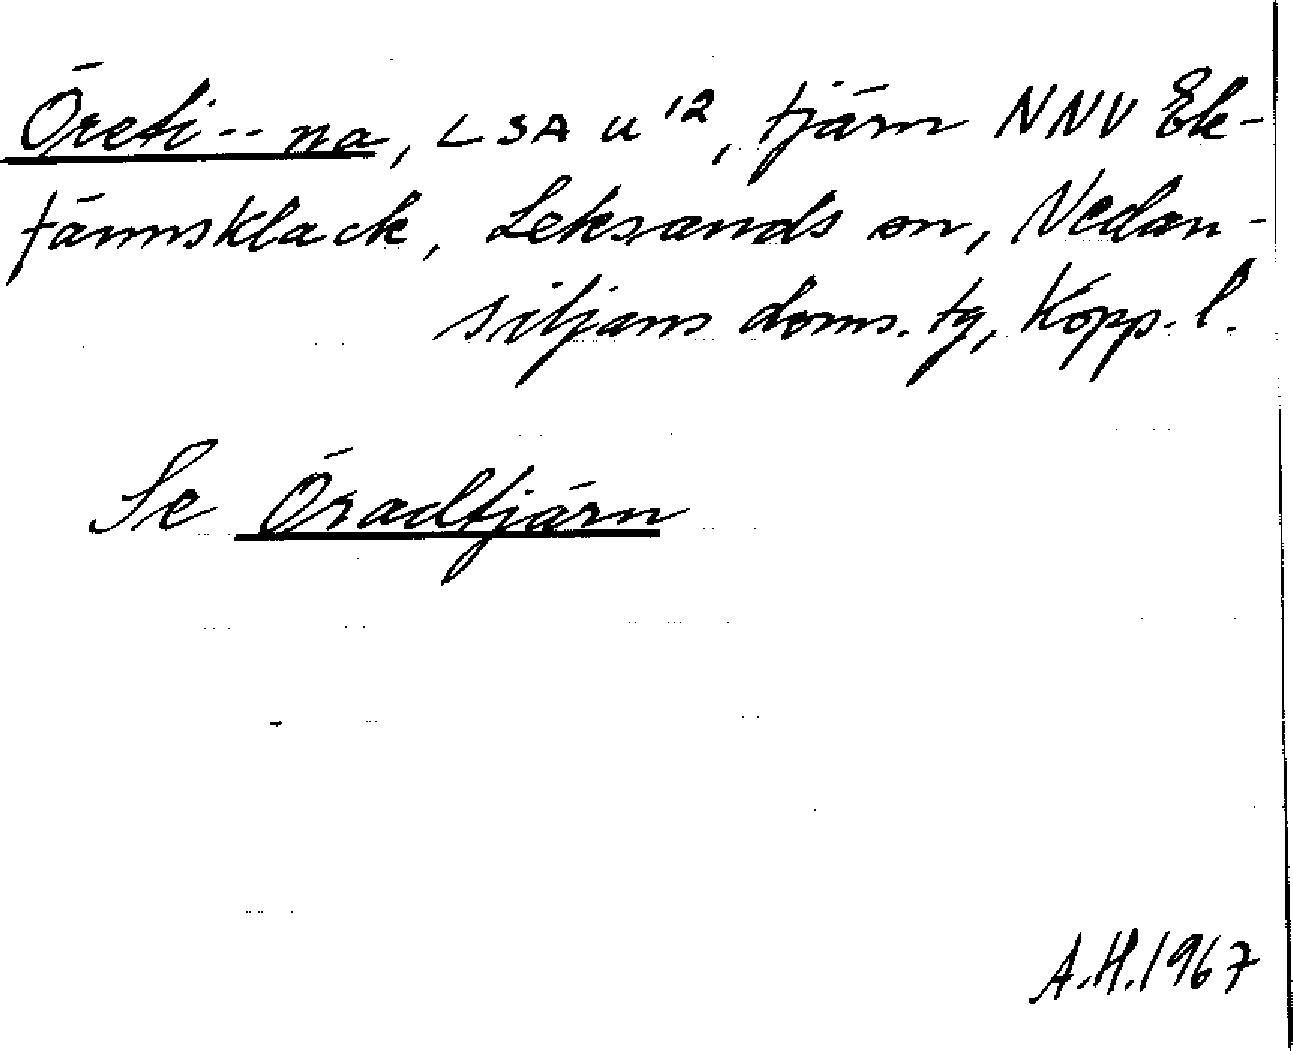 Öreti--na, LSA u 12, tjärn NNV Ek-
tärnsklack, Leksands sn, Nedan-
siljans doms. tg, Kopp. l.
Se Öradtjärn
A.H. 1967